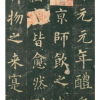 元元年醴
京師飲之
皆愈然
物之來寔